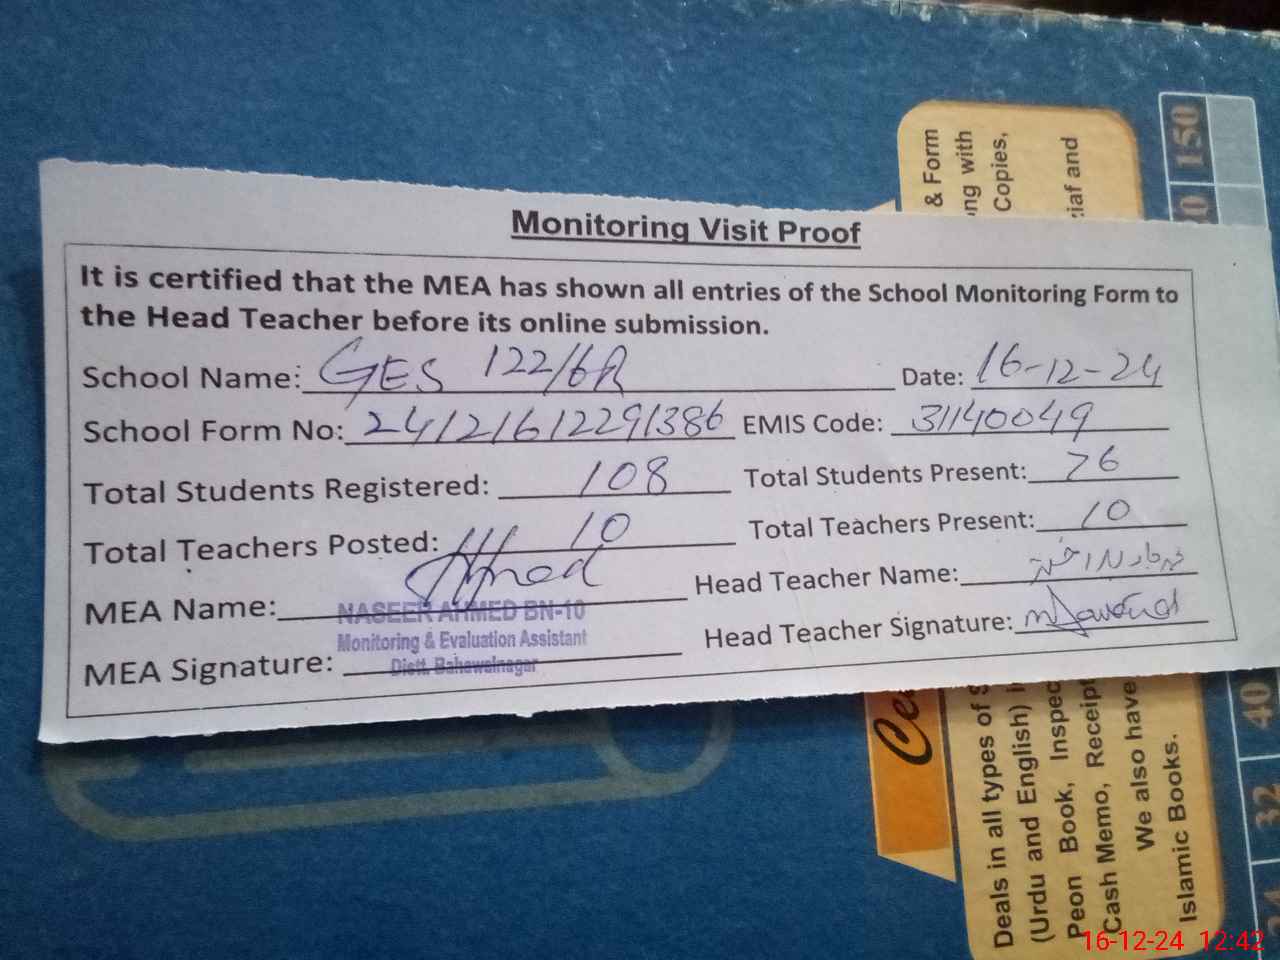 Monitoring Visit Proof
It is certified that the MEA has shown all entries of the School Monitoring Form to
the Head Teacher before its online submission.
School Name: GES 122/6R Date: 16-12-24
School Form No: 24121612291386 EMIS Code: 31140049
Total Students Registered: 108 Total Students Present: 76
Total Teachers Posted: 10 Total Teachers Present: 10
MEA Name: Head Teacher Name:
NASEER AHMED BN-10
Monitoring & Evaluation Assistant
Distt. Bahawalnagar
MEA Signature: Head Teacher Signature:
& Form
ng with
Copies,
iaf and
150
Deals in all types of
(Urdu and English)
Peon Book, Inspec
Cash Memo, Receipt
We also have
Islamic Books.
40
32
16-12-24 12:42